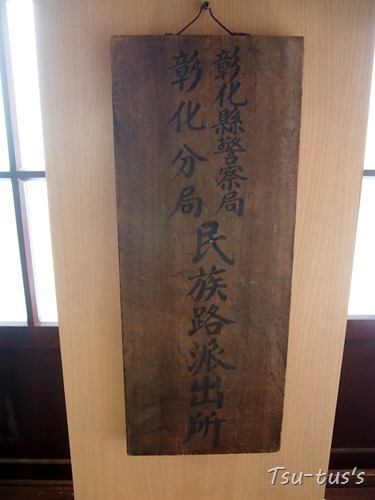 彰化縣警察局
彰化分局
民族路派出所
Tsu-tus's